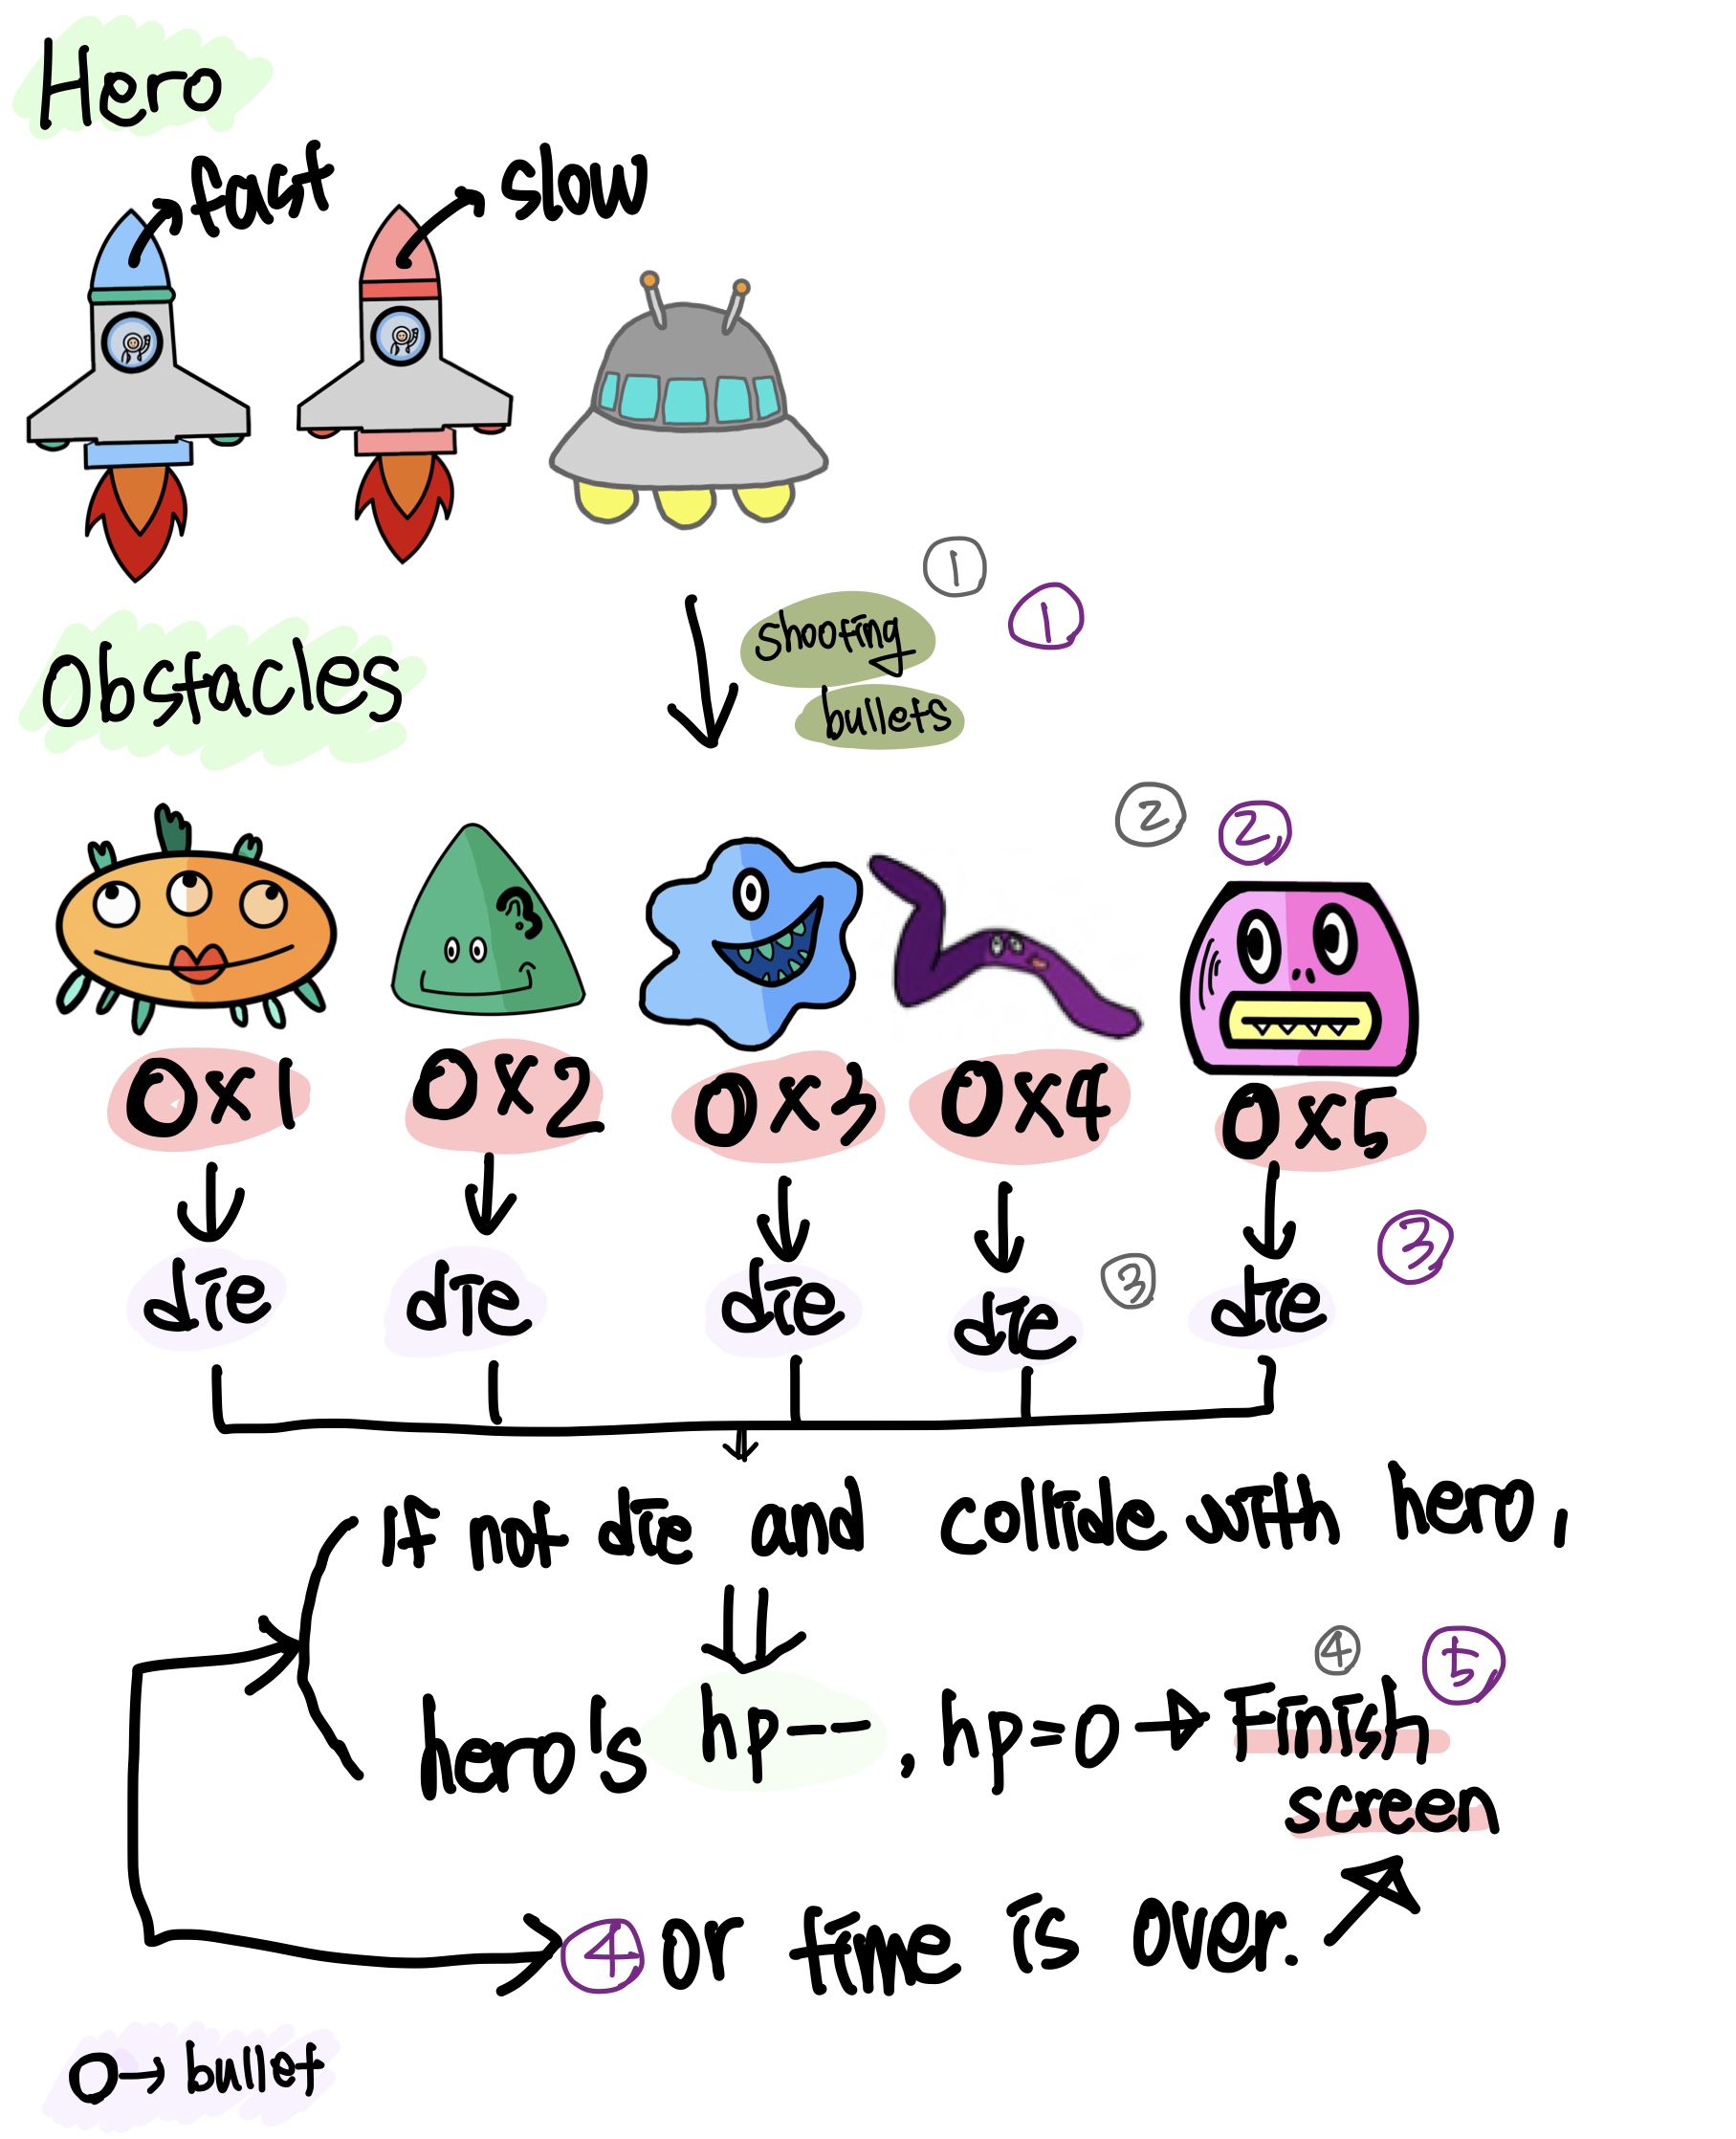 Hero
fast
slow
①
①
shooting
bullets
Obstacles
②
②
0x1
0x2
0x3
0x4
0x5
③
③
die
die
die
die
die
If not die and collide with hero,
④
⑤
hero's hp--, hp=0 → Finish
screen
④ or time is over.
0→bullet